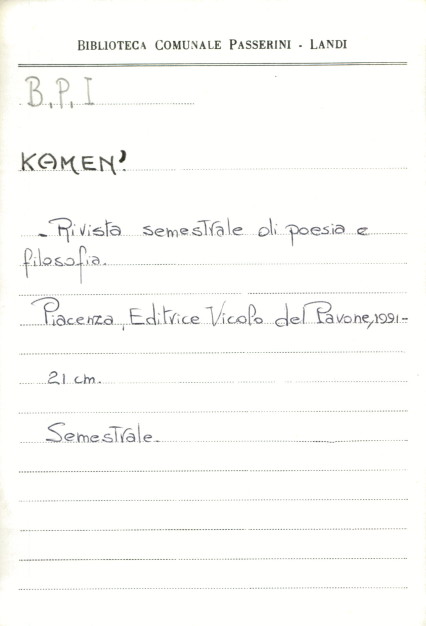 BIBLIOTECA COMUNALE PASSERINI - LANDI
B.P.I
KAMEN'
- Rivista semestrale di poesia e
filosofia.
Piacenza, Editrice Vicolo del Pavone, 1991-
21 cm.
Semestrale.